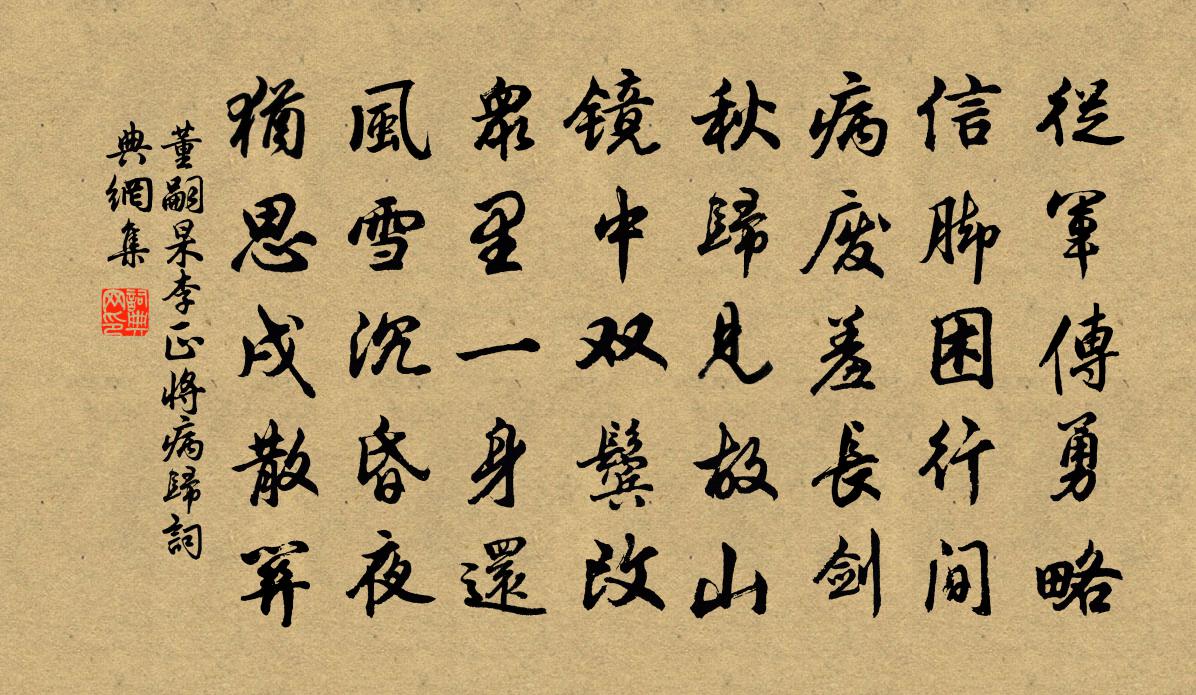 從軍傳勇略
信脚困行間
病废羞長劍
秋歸見故山
镜中双鬓改
眾里一身還
風雪沉昏夜
猶思戍散關
董嗣杲李正将病歸詞
典網集
詞典网印